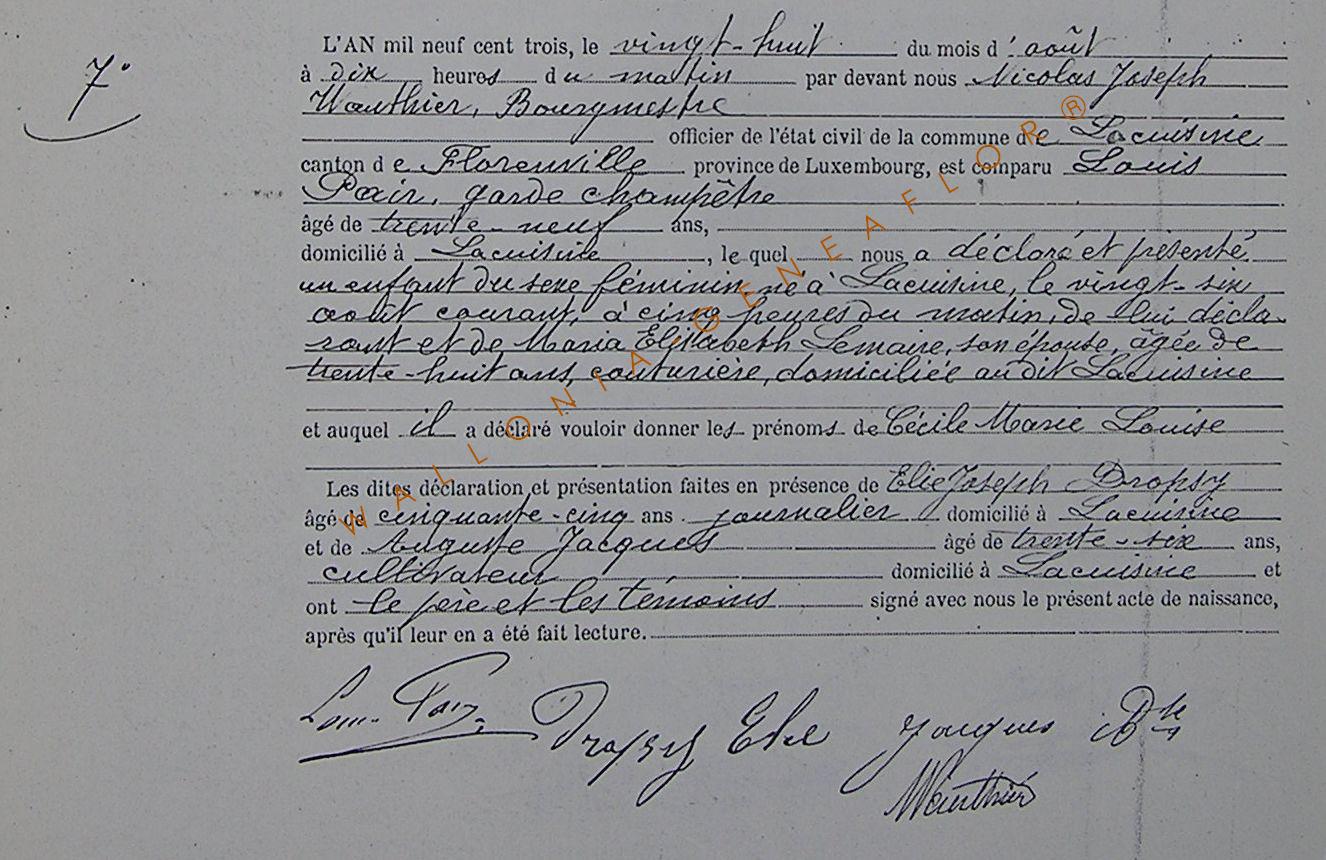 7°
L'AN mil neuf cent trois, le vingt-huit du mois d'août
à dix heures du matin par devant nous Nicolas Joseph
Wauthier, Bourgmestre
officier de l'état civil de la commune de Lacuisine
canton de Florenville province de Luxembourg, est comparu Louis
Pair, garde champêtre
âgé de trente-neuf ans,
domicilié à Lacuisine, le quel nous a déclaré et présenté
un enfant du sexe féminin né à Lacuisine, le vingt-six
août courant, à cinq heures du matin, de lui décla-
rant et de Maria Elisabeth Lemaire, son épouse, âgée de
trente-huit ans, couturière, domiciliée au dit Lacuisine
et auquel il a déclaré vouloir donner les prénoms de Cécile Marie Louise
Les dites déclaration et présentation faites en présence de Elie Joseph Dropsy
âgé de cinquante-cinq ans journalier domicilié à Lacuisine
et de Auguste Jacques âgé de trente-six ans,
cultivateur domicilié à Lacuisine et
ont le père et les témoins signé avec nous le présent acte de naissance,
après qu'il leur en a été fait lecture.
Pair
Dropsy Elie
Jacques
Wauthier
WALLONIA GENEAFLOR®